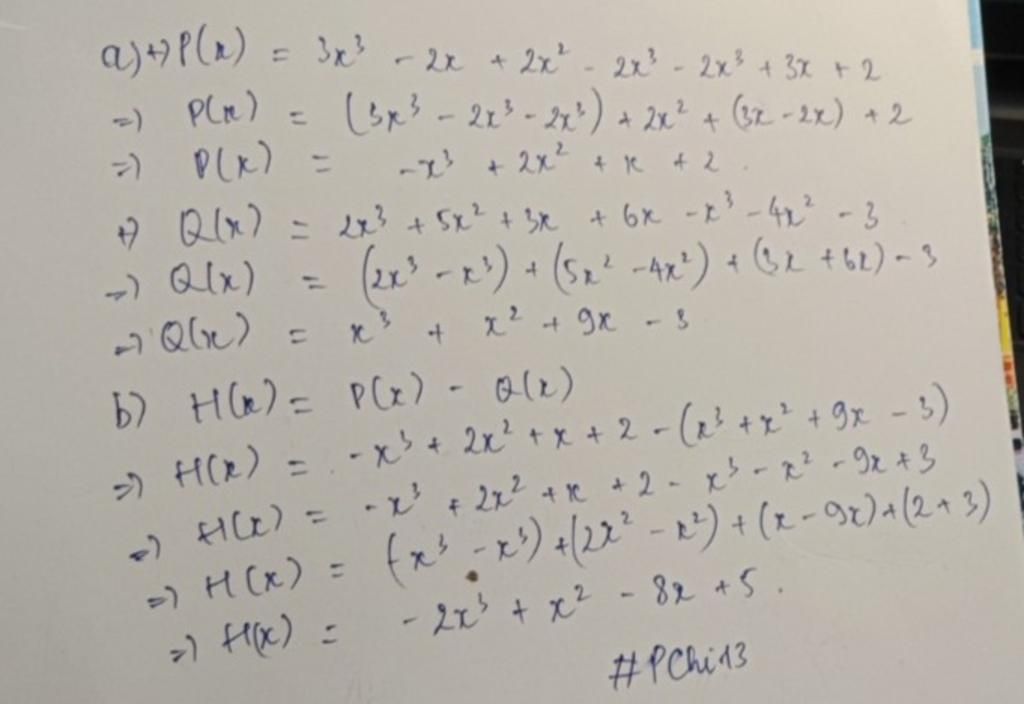 a) +) P(x) = 3x³ - 2x + 2x² - 2x³ - 2x³ + 3x + 2
=> P(x) = (3x³ - 2x³ - 2x³) + 2x² + (3x - 2x) + 2
=> P(x) = -x³ + 2x² + x + 2.
+) Q(x) = 2x³ + 5x² + 3x + 6x - x³ - 4x² - 3
=> Q(x) = (2x³ - x³) + (5x² - 4x²) + (3x + 6x) - 3
=> Q(x) = x³ + x² + 9x - 3
b) H(x) = P(x) - Q(x)
=> H(x) = -x³ + 2x² + x + 2 - (x³ + x² + 9x - 3)
=> H(x) = -x³ + 2x² + x + 2 - x³ - x² - 9x + 3
=> H(x) = (-x³ - x³) + (2x² - x²) + (x - 9x) + (2 + 3)
=> H(x) = -2x³ + x² - 8x + 5.
#PChi13